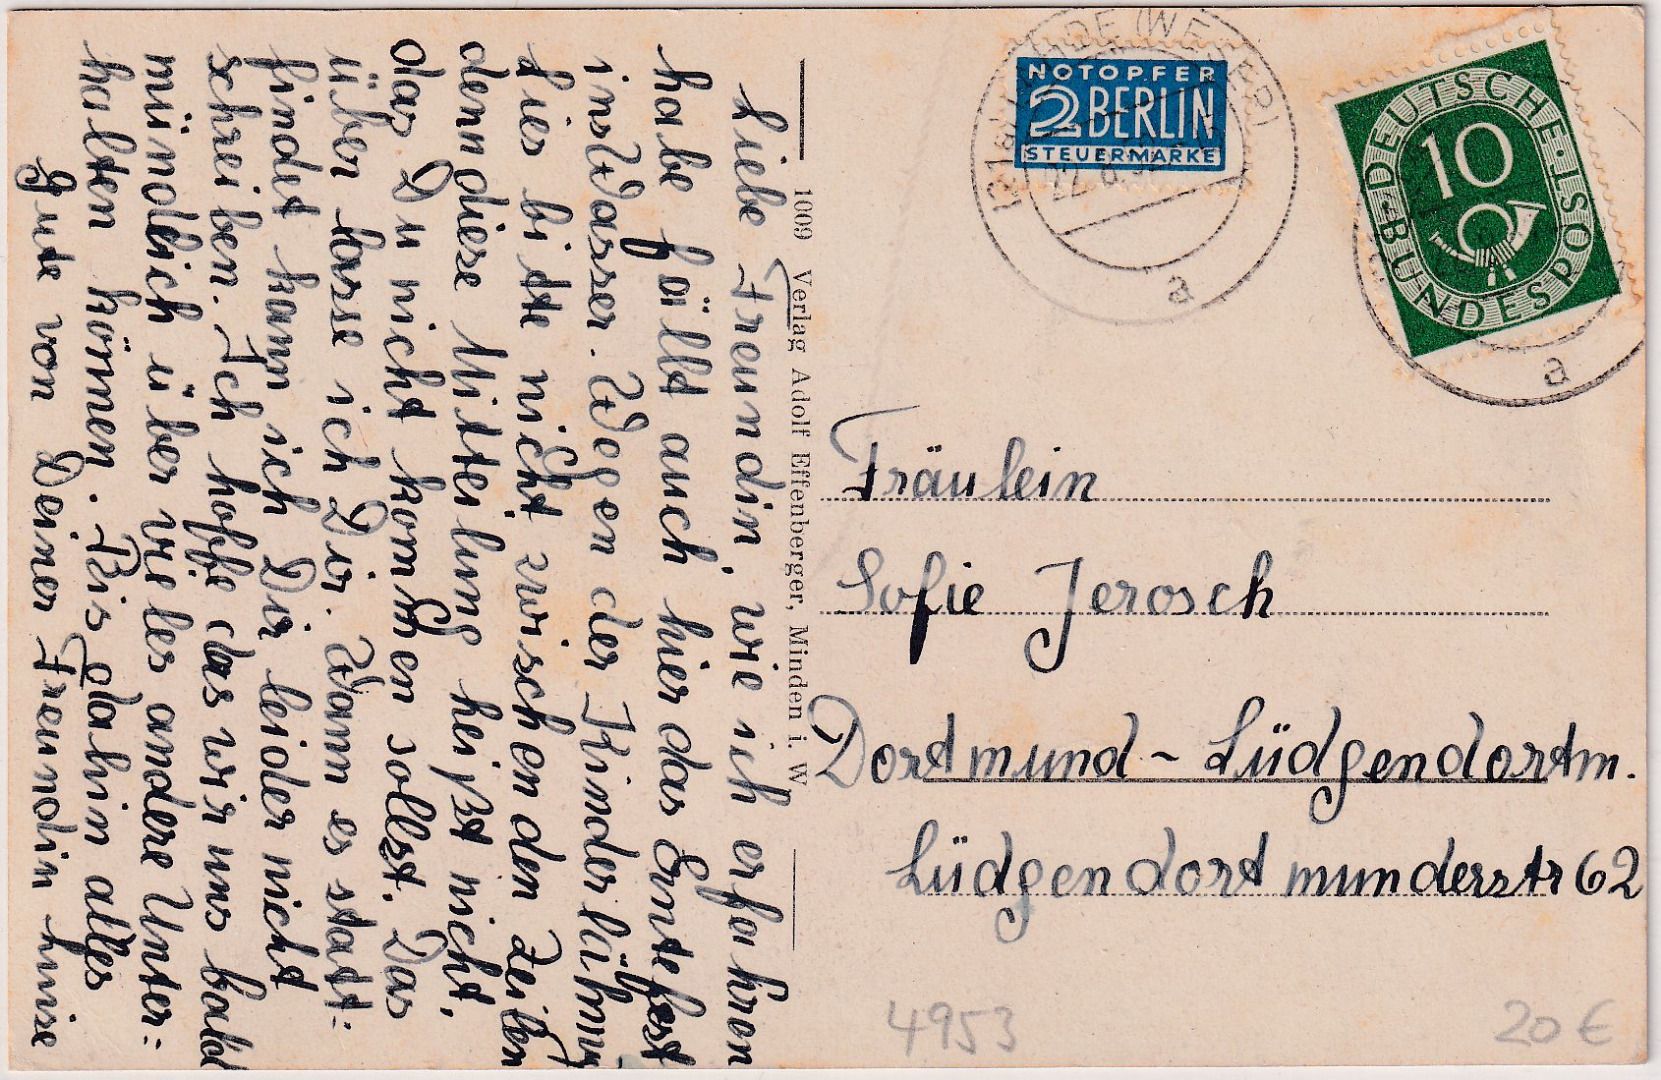 Liebe Freundin, wie ich erfahren
habe fällt auch hier das Erntefest
ins Wasser. Wegen der Kinderlähmg
Lies bitte nicht zwischen den Zeilen
denn diese Mitteilung heißt nicht,
das Du nicht kommen sollst. Das
über lasse ich Dir. Wann es statt=
findet kann ich Dir leider nicht
schreiben. Ich hoffe das wir uns bald
mündlich über vieles andere Unter=
halten können. Bis dahin alles
gute von Deiner Freundin Luise
1009 Verlag Adolf Effenberger, Minden i. W.
NOTOPFER
2 BERLIN
STEUERMARKE
(WESER)
a
DEUTSCHE · POST
BUNDESPOST
10
a
Fräulein
Sofie Jerosch
Dortmund - Lüdgendortm.
Lüdgendortmunderstr 62
4953
20 €